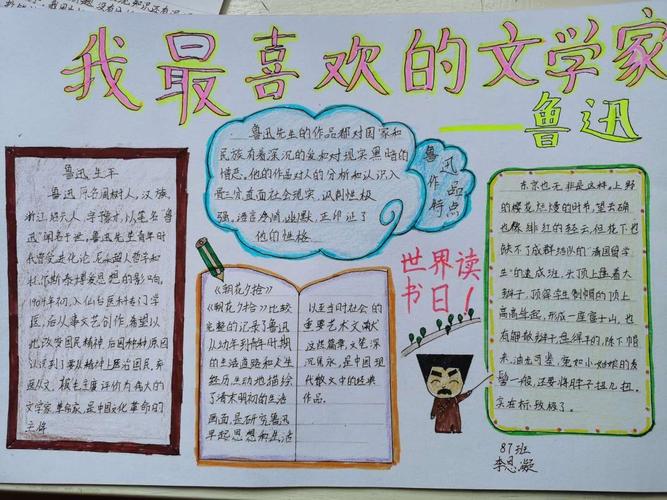 我最喜欢的文学家
——鲁迅
鲁迅生平
鲁迅原名周树人,汉族,
浙江绍兴人,字豫才,以笔名"鲁
迅"闻名于世。鲁迅先生青年时
代曾受进化论,尼采超人哲学和
托尔斯泰博爱思想的影响。
1904年初,入仙台医科专门学
医,后从事文艺创作,希望以
此改变国民精神
文学家,革命家,是中国文化革命的
主将
鲁迅先生的作品都对国家和
民族有着深沉的爱和对现实黑暗的
愤怒。他的作品对人的分析和认识入
骨三分直面社会现实,讽刺性极
强,语言凝练,幽默,正印证了
他们性格
鲁迅
作品
特点
《朝花夕拾》
《朝花夕拾》比较
完整的记录了鲁迅
从幼年到青年时期
的生活道路和人生
经历,生动地描绘
了清末明初的生活
画面,是研究鲁迅
早起思想和生活
以至当时社会的
重要艺术文献
这些篇章,文笔深
沉隽永,是中国现
代散文中的经典
作品。
世界读
书日!
东京也无非是这样。上野
的樱花烂熳的时节,望去确
也像绯红的轻云,但花下也
缺不了成群结队的"清国留学
生"的速成班,头顶上盘着大
辫子,顶得学生制帽的顶上
高高耸起,形成一座富士山。也
有解散辫子,盘得平的,除下帽
来,油光可鉴,宛如小姑娘的发
髻一般,还要将脖子扭几扭。
实在标致极了。
87班
李思凝